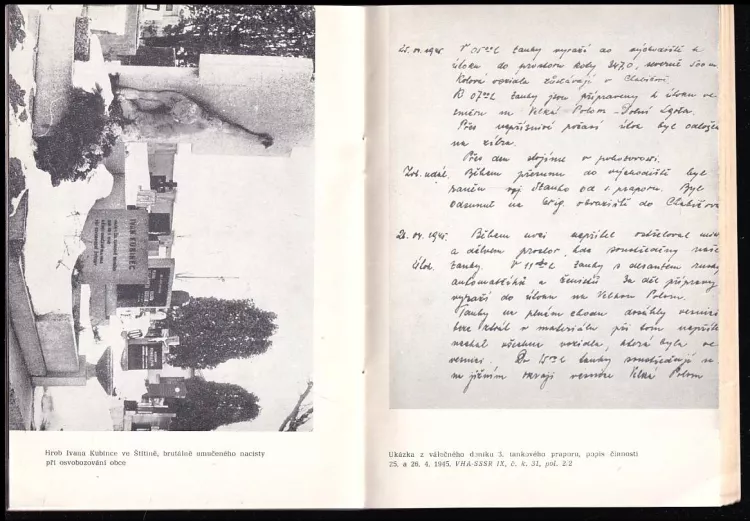 IVAN KUBINEC
Hrob Ivana Kubince ve Štítině, brutálně umučeného nacisty
při osvobozování obce
25. 04. 1945 V 05⁰⁰ h tanky vyrazí do východiště k
útoku do prostoru koty 347,0, severně 500 m.
Kolová vozidla zůstávají v Chabičově.
V 07⁰⁰ h tanky jsou připraveny k útoku ve
směru na Velká Polom - Dolní Lhota.
Přes nepříznivé počasí útok byl odložen
na zítra.
Přes den stojíme v pohotovosti.
Zvl. udál. Během přesunu do východiště byl
raněn voj. Stanko od 1. praporu. Byl
odsunut na brig. obvaziště do Chabičova
26. 04. 1945. Během noci nepřítel ostřeloval
a děly prostor, kde soustředěny naše
Útok. tanky. V h tanky s desantem
automatčíků a ženistů za děl. přípravy
vyrazí do útoku na Velkou Polom.
Tanky na plném chodu dosáhly vesnice
bez ztrát v materiálu při tom nepřítel
nechal všechna vozidla, která byla ve
vesnici. Do 15⁰⁰ h tanky soustřeďují se
na jižním okraji vesnice Velká Polom
Ukázka z válečného deníku 3. tankového praporu, popis činnosti
25. a 26. 4. 1945. VHA-SSSR IX, č. k. 31, pol. 2/2